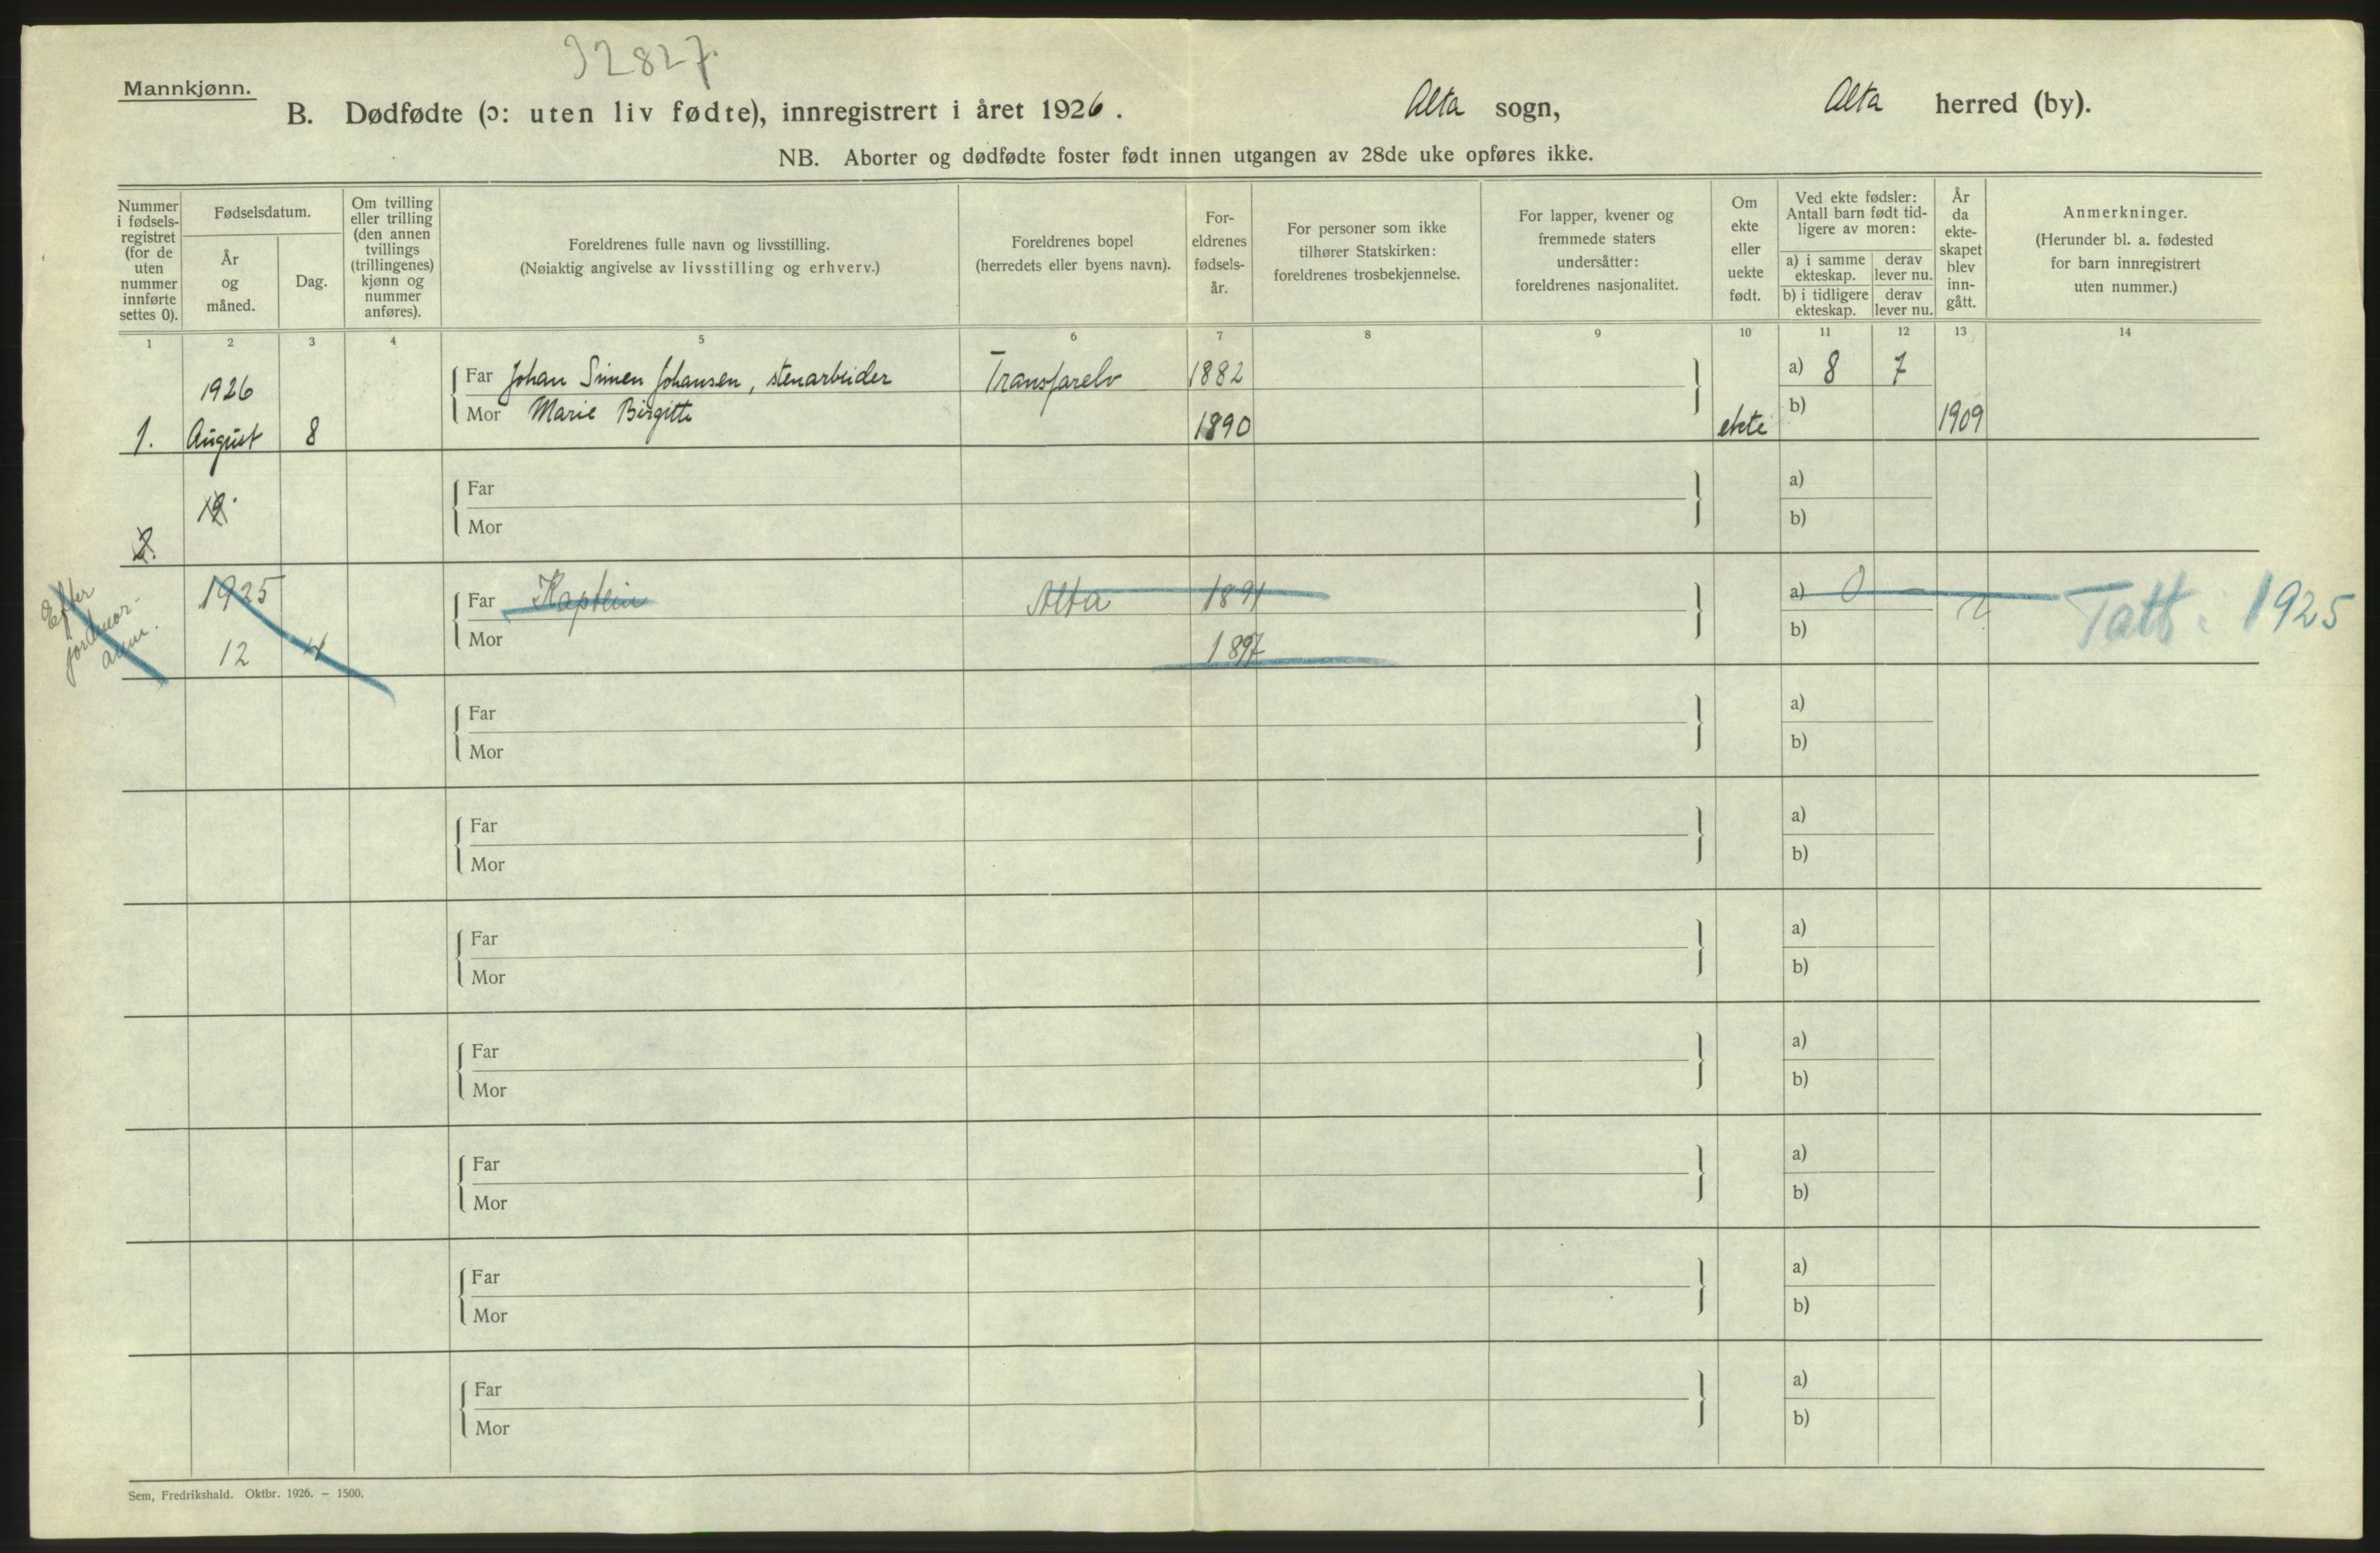 32827
Mannkjønn.
B. Dødfødte (ɔ: uten liv fødte), innregistrert i året 1926. Alta sogn, Alta herred (by).
NB. Aborter og dødfødte foster født innen utgangen av 28de uke opføres ikke.
Nummer
i fødsels-
registret
(for de
uten
nummer
innførte
settes 0).
Fødselsdatum.
År
og
måned.
Dag.
Om tvilling
eller trilling
(den annen
tvillings
(trillingenes)
kjønn og
nummer
anføres).
Foreldrenes fulle navn og livsstilling.
(Nøiaktig angivelse av livsstilling og erhverv.)
Foreldrenes bopel
(herredets eller byens navn).
For-
eldrenes
fødsels-
år.
For personer som ikke
tilhører Statskirken:
foreldrenes trosbekjennelse.
For lapper, kvener og
fremmede staters
undersåtter:
foreldrenes nasjonalitet.
Om
ekte
eller
uekte
født.
Ved ekte fødsler:
Antall barn født tid-
ligere av moren:
a) i samme
ekteskap.
derav
lever nu.
b) i tidligere
ekteskap.
derav
lever nu.
År
da
ekte-
skapet
blev
inn-
gått.
Anmerkninger.
(Herunder bl. a. fødested
for barn innregistrert
uten nummer.)
1 2 3 4 5 6 7 8 9 10 11 12 13 14
Far Johan Simen Johansen, stenarbeider Transfarelv 1882 a) 8 7
1926
Mor Marie Birgitte 1890 b)
1. August 8 ekte 1909
Far a)
19.
Mor b)
2.
Efter
jordmor-
1925 Far Kaptein Alta 1891 a) 0 - Tatt i 1925
12 4 Mor 1897 b) ?
Far a)
Mor b)
Far a)
Mor b)
Far a)
Mor b)
Far a)
Mor b)
Far a)
Mor b)
Far a)
Mor b)
Far a)
Mor b)
Sem, Fredrikshald. Oktbr. 1926. – 1500.